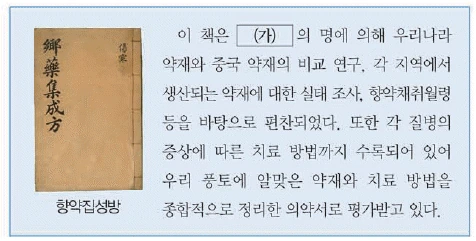 傷寒
鄕藥集成方
향약집성방
이 책은 (가) 의 명에 의해 우리나라
약재와 중국 약재의 비교 연구, 각 지역에서
생산되는 약재에 대한 실태 조사, 향약채취월령
등을 바탕으로 편찬되었다. 또한 각 질병의
증상에 따른 치료 방법까지 수록되어 있어
우리 풍토에 알맞은 약재와 치료 방법을
종합적으로 정리한 의약서로 평가받고 있다.